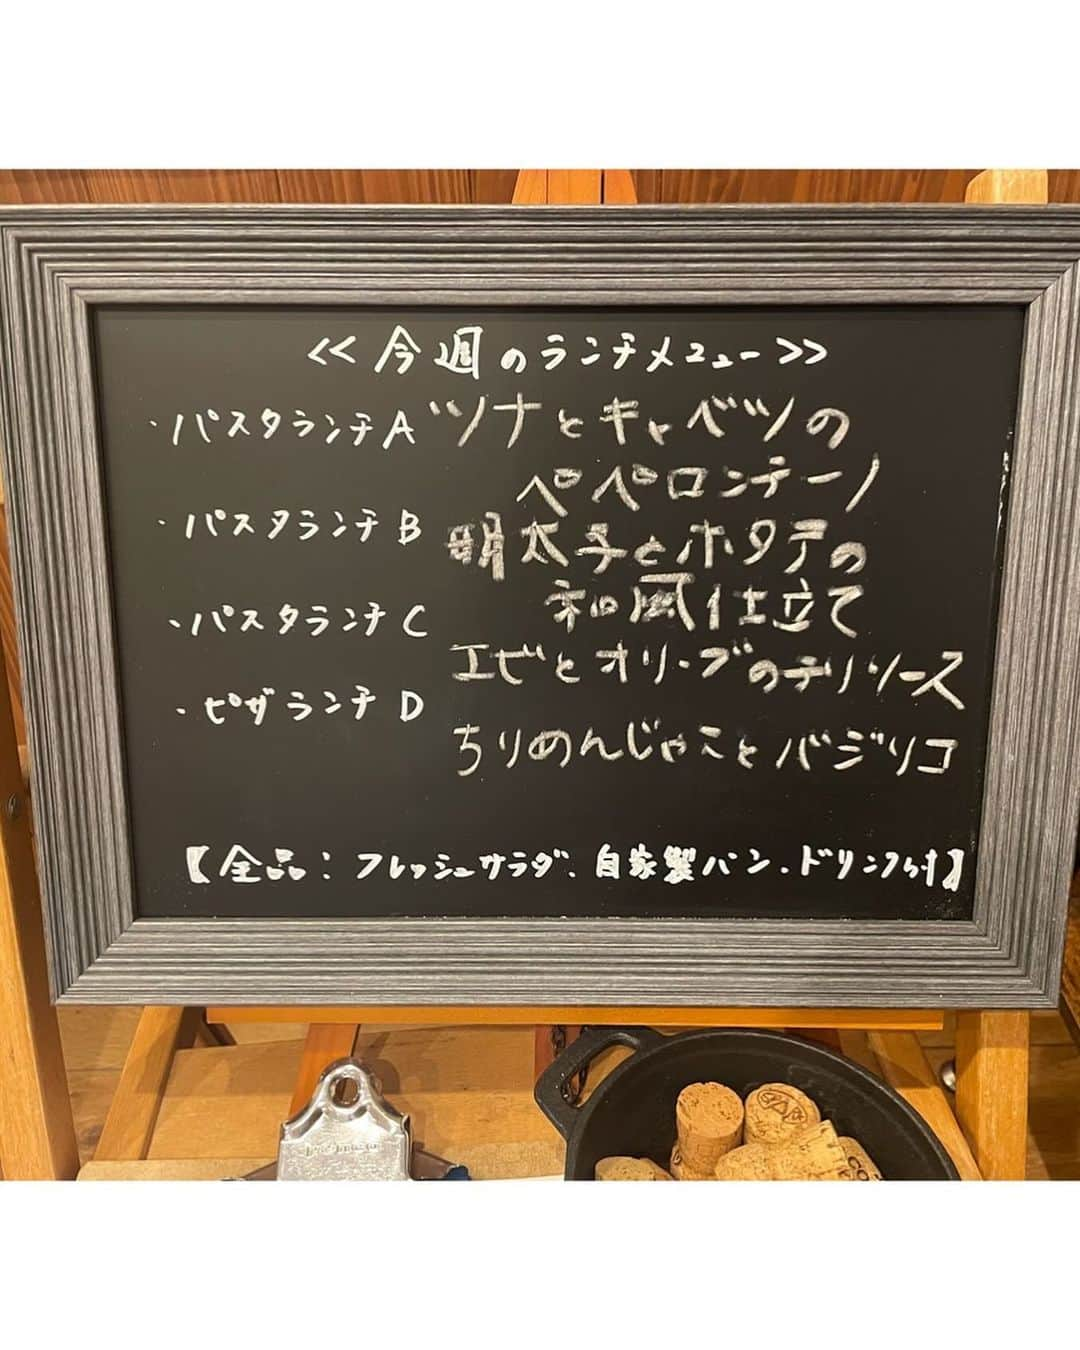 <<今週のランチメニュー>>
・パスタランチA ツナとキャベツの
ペペロンチーノ
・パスタランチB 明太子とホタテの
和風仕立て
・パスタランチC エビとオリーブのチリソース
・ピザランチD ちりめんじゃことバジリコ
【全品：フレッシュサラダ、自家製パン、ドリンク付】